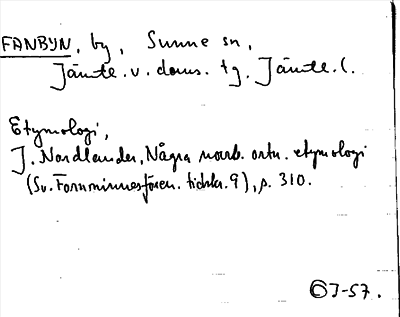 FANBYN, by, Sunne sn,
Jämte. v. doms. tg. Jämte. l.
Etymologi,
J. Nordlander, Några norrb. ortn. etymologi
(Sv. Fornminnesfören. tidskr. 9), s. 310.
©J-57.